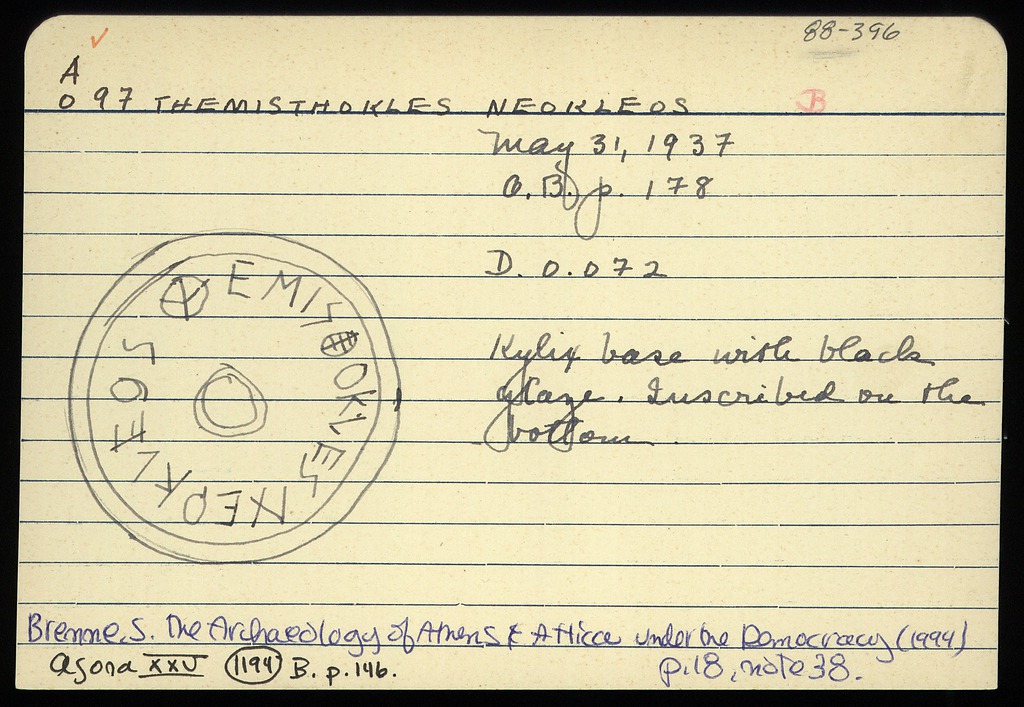 88-396
A
O 97 THEMISTHOKLES NEOKLEOS B
May 31, 1937
O.B. p. 178
D. O.072
ⴲEMISⴲOKLES NEOKLEOS
Kylix base with black
glaze. Inscribed on the
bottom.
Brenne, S. The Archaeology of Athens & Attica under the Democracy (1994)
p.18, note 38.
Agora XXV 1194 B. p.146.